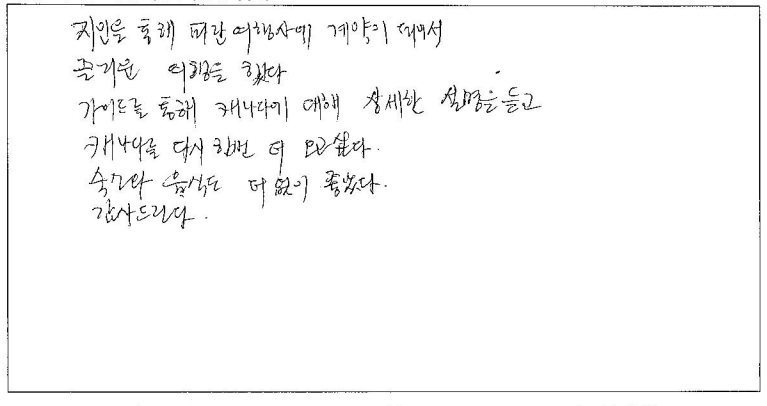 지인을 통해 파란여행사에 계약이 돼어서
즐거운 여행을 했다
가이드를 통해 캐나다에 대해 상세한 설명을 듣고
캐나다를 다시 한번 더 오고싶다.
숙소와 음식도 더없이 좋았다.
감사드린다.